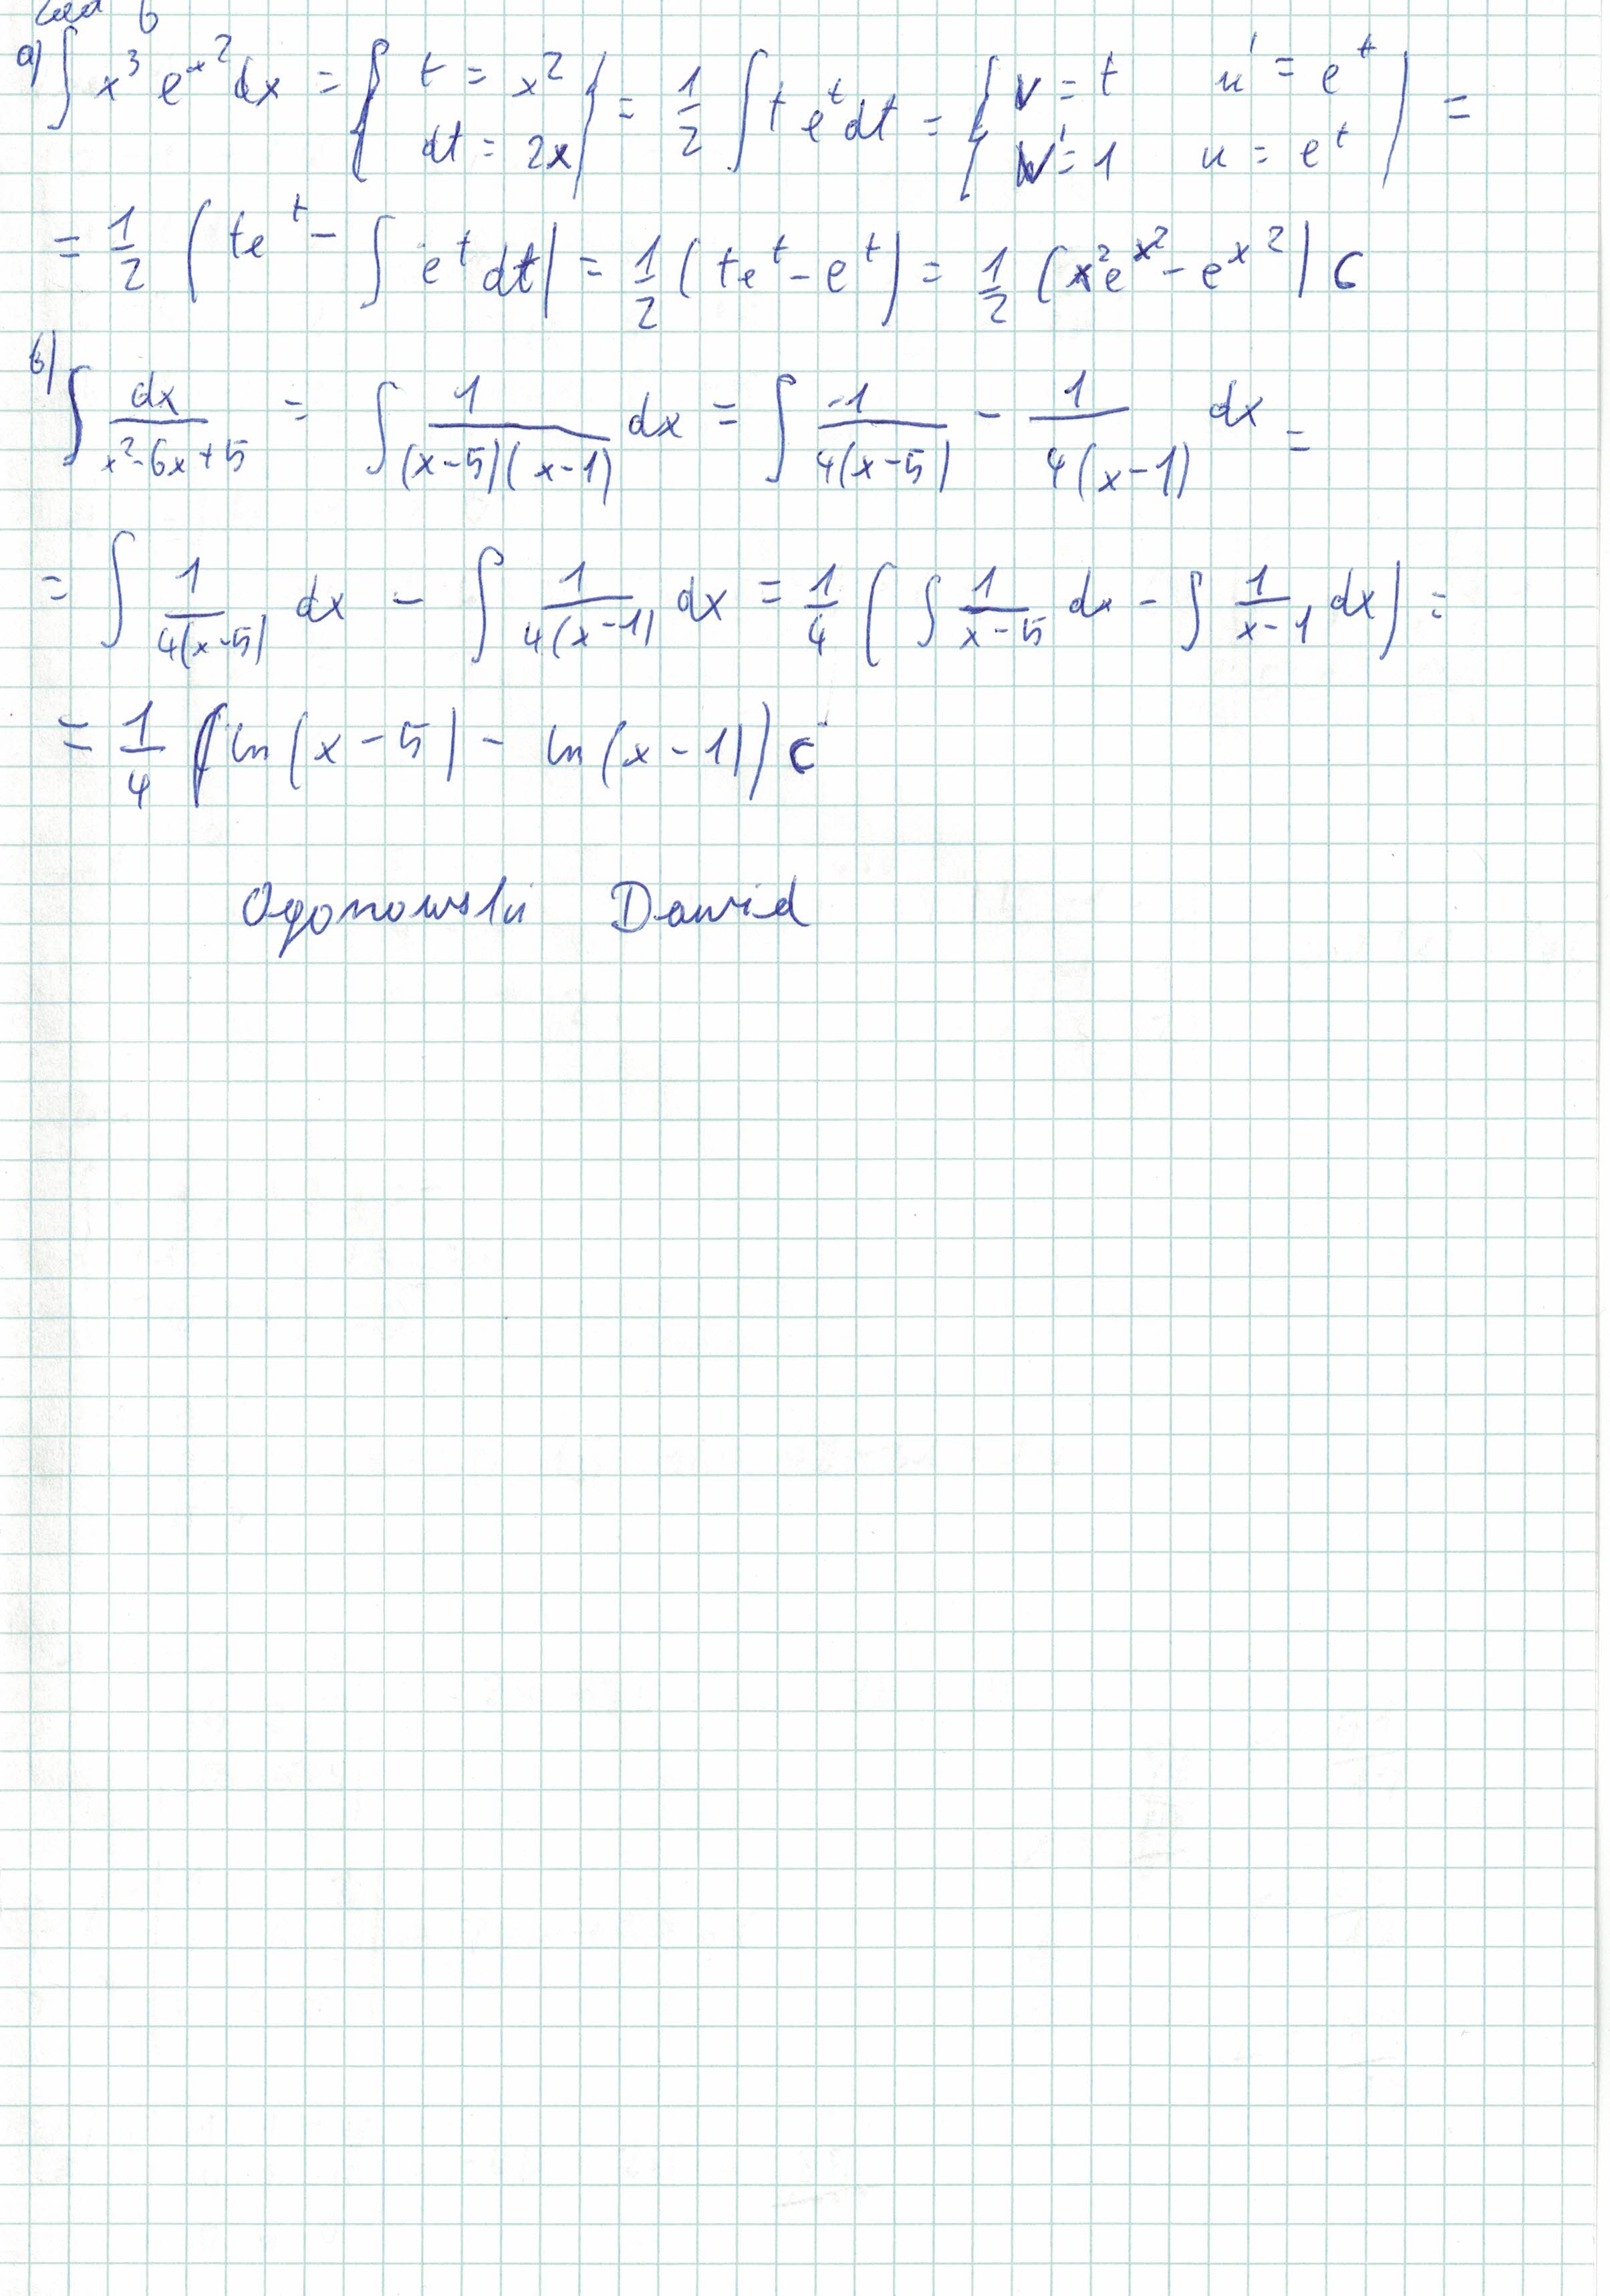 Zad 6
a) ∫ x³ e^(x²) dx = { t = x² dt = 2x } = 1/2 ∫ t e^t dt = { v = t u' = e^t v' = 1 u = e^t | =
= 1/2 ( te^t - ∫ e^t dt | = 1/2 ( te^t - e^t ) = 1/2 ( x² e^(x²) - e^(x²) | C
b) ∫ dx/(x²-6x+5) = ∫ 1/((x-5)(x-1)) dx = ∫ -1/(4(x-5)) - 1/(4(x-1)) dx =
= ∫ 1/(4(x-5)) dx - ∫ 1/(4(x-1)) dx = 1/4 ( ∫ 1/(x-5) dx - ∫ 1/(x-1) dx ) =
= 1/4 ( ln(x-5) - ln(x-1) ) C
Ogonowski Dawid